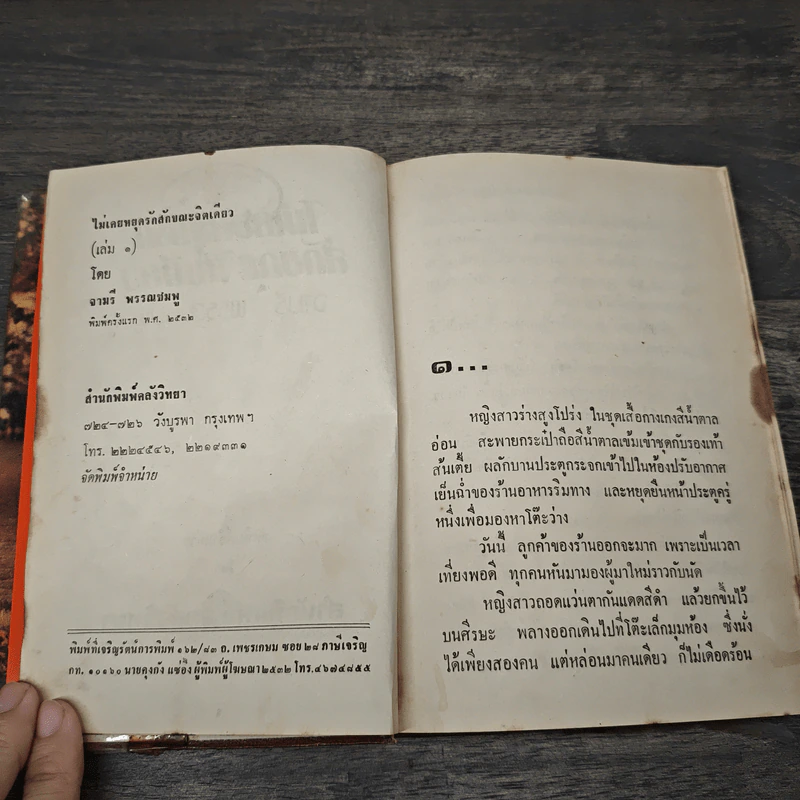 ไม่เคยหยุดรักสักขณะจิตเดียว
(เล่ม ๑)
โดย
จามรี พรรณชมพู
พิมพ์ครั้งแรก พ.ศ. ๒๕๓๒
สำนักพิมพ์คลังวิทยา
๗๒๔-๗๒๖ วังบูรพา กรุงเทพฯ
โทร. ๒๒๒๔๕๔๖, ๒๒๑๙๓๓๑
จัดพิมพ์จำหน่าย
พิมพ์ที่เจริญรัตน์การพิมพ์ ๑๖๒/๘๓ ถ. เพชรเกษม ซอย ๒๘ ภาษีเจริญ
กท. ๑๐๑๖๐ นายคุงกัง แซ่อึ้ง ผู้พิมพ์ผู้โฆษณา ๒๕๓๒ โทร.๔๖๗๔๘๕๕
๑...
หญิงสาวร่างสูงโปร่ง ในชุดเสื้อกางเกงสีน้ำตาล
อ่อน สะพายกระเป๋าถือสีน้ำตาลเข้มเข้าชุดกับรองเท้า
ส้นเตี้ย ผลักบานประตูกระจกเข้าไปในห้องปรับอากาศ
เย็นฉ่ำของร้านอาหารริมทาง และหยุดยืนหน้าประตูครู่
หนึ่งเพื่อมองหาโต๊ะว่าง
วันนี้ ลูกค้าของร้านออกจะมาก เพราะเป็นเวลา
เที่ยงพอดี ทุกคนหันมามองผู้มาใหม่ราวกับนัด
หญิงสาวถอดแว่นตากันแดดสีดำ แล้วยกขึ้นไว้
บนศีรษะ พลางออกเดินไปที่โต๊ะเล็กมุมห้อง ซึ่งนั่ง
ได้เพียงสองคน แต่หล่อนมาคนเดียว ก็ไม่เดือดร้อน